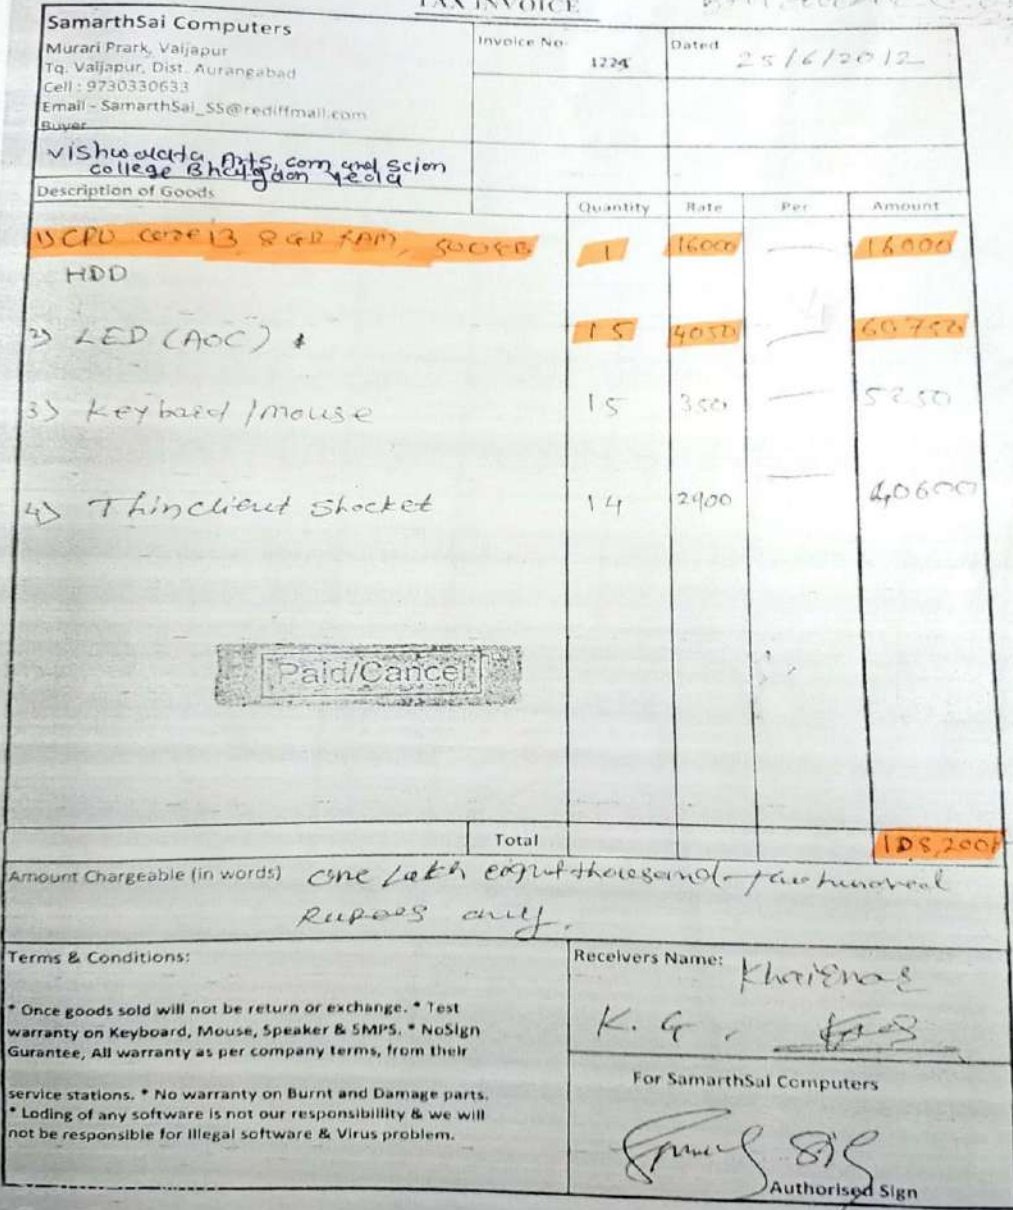 TAX INVOICE
SamarthSai Computers
Murari Prark, Vaijapur
Tq. Vaijapur, Dist. Aurangabad
Cell : 9730330633
Email - SamarthSai_SS@rediffmail.com
Invoice No.
1224
Dated
25/6/2012
Buyer
vishwalata, Arts, com and Scion
college Bhatgaon Yeola
Description of Goods Quantity Rate Per Amount
1) CPU core i3 8 GB RAM, 500GB 1 16000 — 16000
HDD
2) LED (AOC) 15 4050 — 60750
3) Keybaird / mouse 15 350 — 5250
4) Thinclient Shocket 14 2900 — 40600
Paid/Cancel
Total
Amount Chargeable (in words) one Lakh eight thousand two hundred
Rupees only.
Terms & Conditions:
* Once goods sold will not be return or exchange. * Test
warranty on Keyboard, Mouse, Speaker & SMPS. * NoSign
Gurantee, All warranty as per company terms, from their
service stations. * No warranty on Burnt and Damage parts.
* Loding of any software is not our responsibillity & we will
not be responsible for Illegal software & Virus problem.
Receivers Name: Khairnar
K. G.
For SamarthSai Computers
Authorised Sign